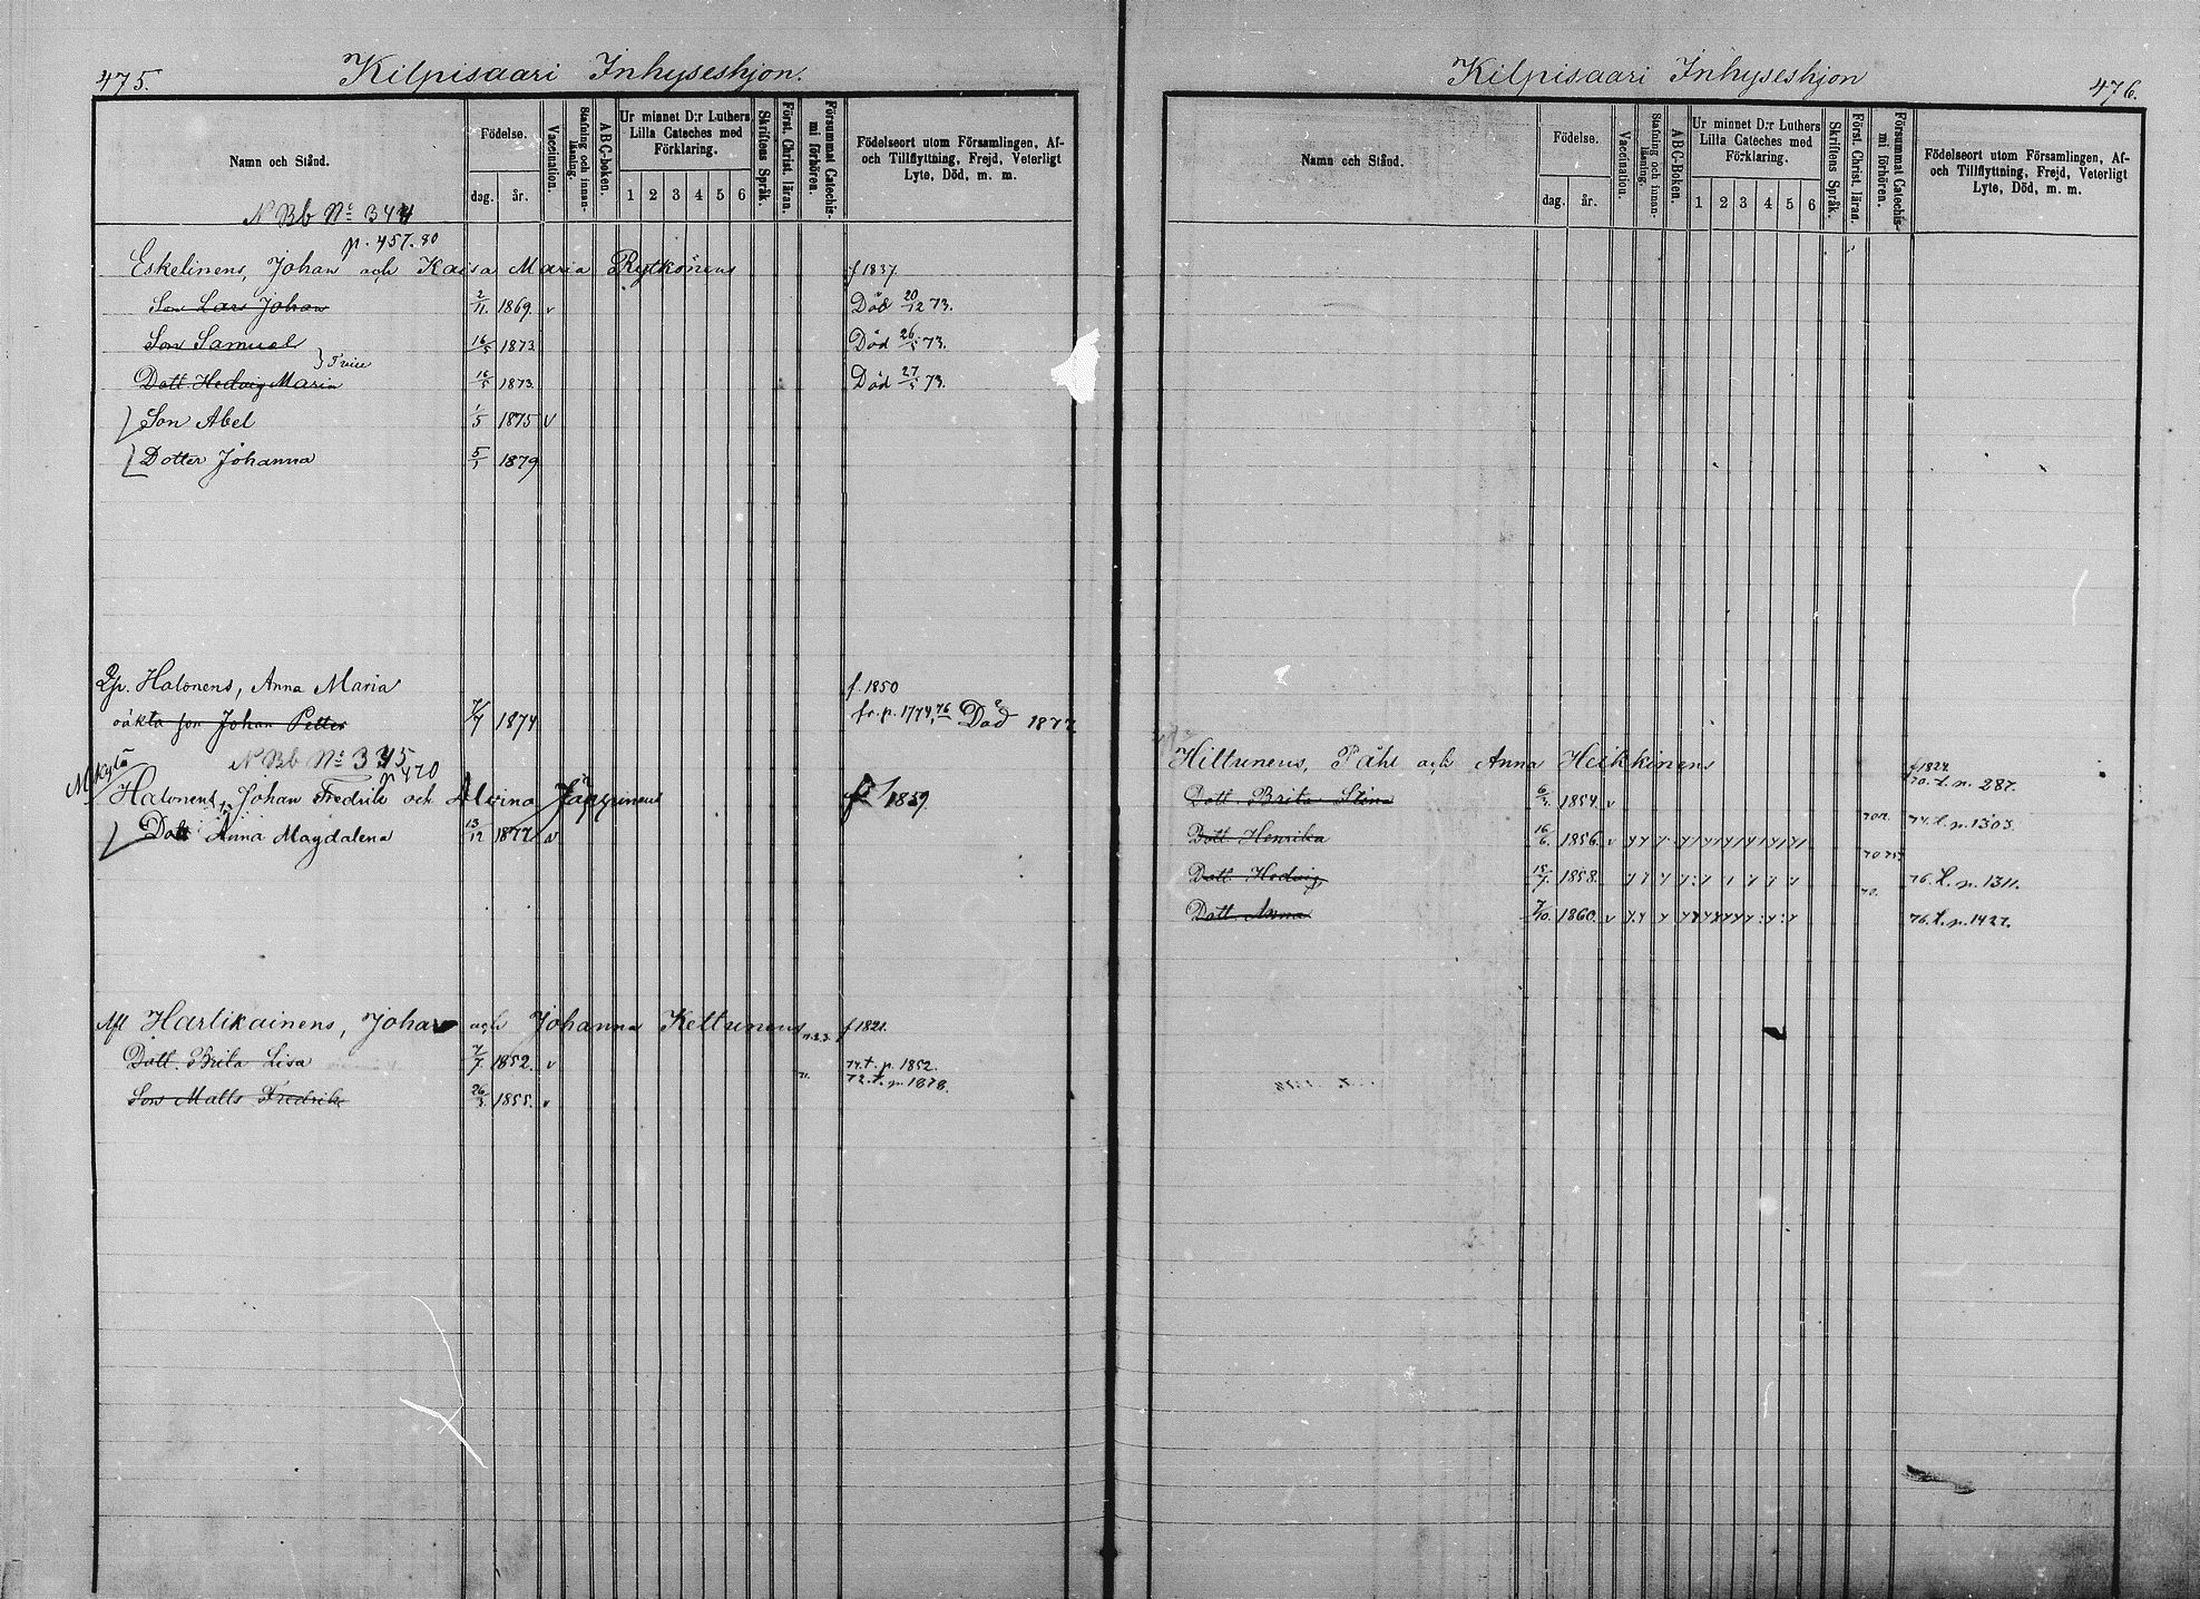 475.
Kilpisaari Inhyseshjon.
Namn och Stånd.
Födelse.
dag. år.
Vaccination.
Stafning och innanläsning.
ABC-boken.
Ur minnet D:r Luthers Lilla Cateches med Förklaring.
1 2 3 4 5 6
Skriftens Språk.
Först. Christ. läran.
Försummat Catechismi förhören.
Födelseort utom Församlingen, Af- och Tillflyttning, Frejd, Veterligt Lyte, Död, m. m.
N Bb No 344
p. 457. 80
Eskelinens, Johan och Kaisa Maria Rytkönens f 1837
Son Lars Johan 2/11. 1869. v Död 20/12 73.
Son Samuel 16/5 1873 Död 26/5 73.
Dott. Hedvig Maria 16/5 1873. Död 27/5 73.
Son Abel 1/5 1875 v
Dotter Johanna 1879
Halonens, Anna Maria f. 1850
oäkta son Johan Petter 1874 fr. p. 1774, 76 Död 1877
N Bb No 345
p 470
Halonens, Johan Fredrik och Alvina 1859.
Dott Anna Magdalena 13/12 1877 v
Hartikainens, Johan och Johanna Keltunens f 1821.
Dott. Brita Lisa 7/7. 1852. v 74. t. p. 1852.
Son Matts Fredrik 26/3. 1855. v 72. t. p. 1878.
Kilpisaari Inhyseshjon
476.
Namn och Stånd.
Födelse.
dag. år.
Vaccination.
Stafning och innanläsning.
ABC-Boken.
Ur minnet D:r Luthers Lilla Cateches med Förklaring.
1 2 3 4 5 6
Skriftens Språk.
Först. Christ. läran.
Försummat Catechismi förhören.
Födelseort utom Församlingen, Af- och Tillflyttning, Frejd, Veterligt Lyte, Död, m. m.
Hiltunens, Påhl och Anna Heikkinens f 1824
Dott. Brita Stina 1854. v 70. t. p. 287.
Dott. Henrika 16/6. 1856. v 74. t. p. 1303.
Dott. Hedvig 1858. 76. t. p. 1311.
Dott. Anna 7/10. 1860. v 76. t. p. 1427.